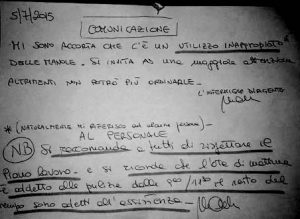 5/7/2015
COMUNICAZIONE
MI SONO ACCORTA CHE C'È UN UTILIZZO INAPPROPIATO
DELLE MANOLE. SI INVITA AD UNA MAGGIORE ATTENZIONE
ALTRIMENTI NON POTRÒ PIÙ ORDINARLE.
L'INFERMIERE DIRIGENTE
*(NATURALMENTE MI RIFERISCO AD ALCUNE PERSONE)
AL PERSONALE
NB Si raccomanda a tutti di rispettare il
Piano lavoro e si ricorda che l'OTA di mattina
è addetto alle pulizie dalle il resto del
tempo sono adetti all'assistenza